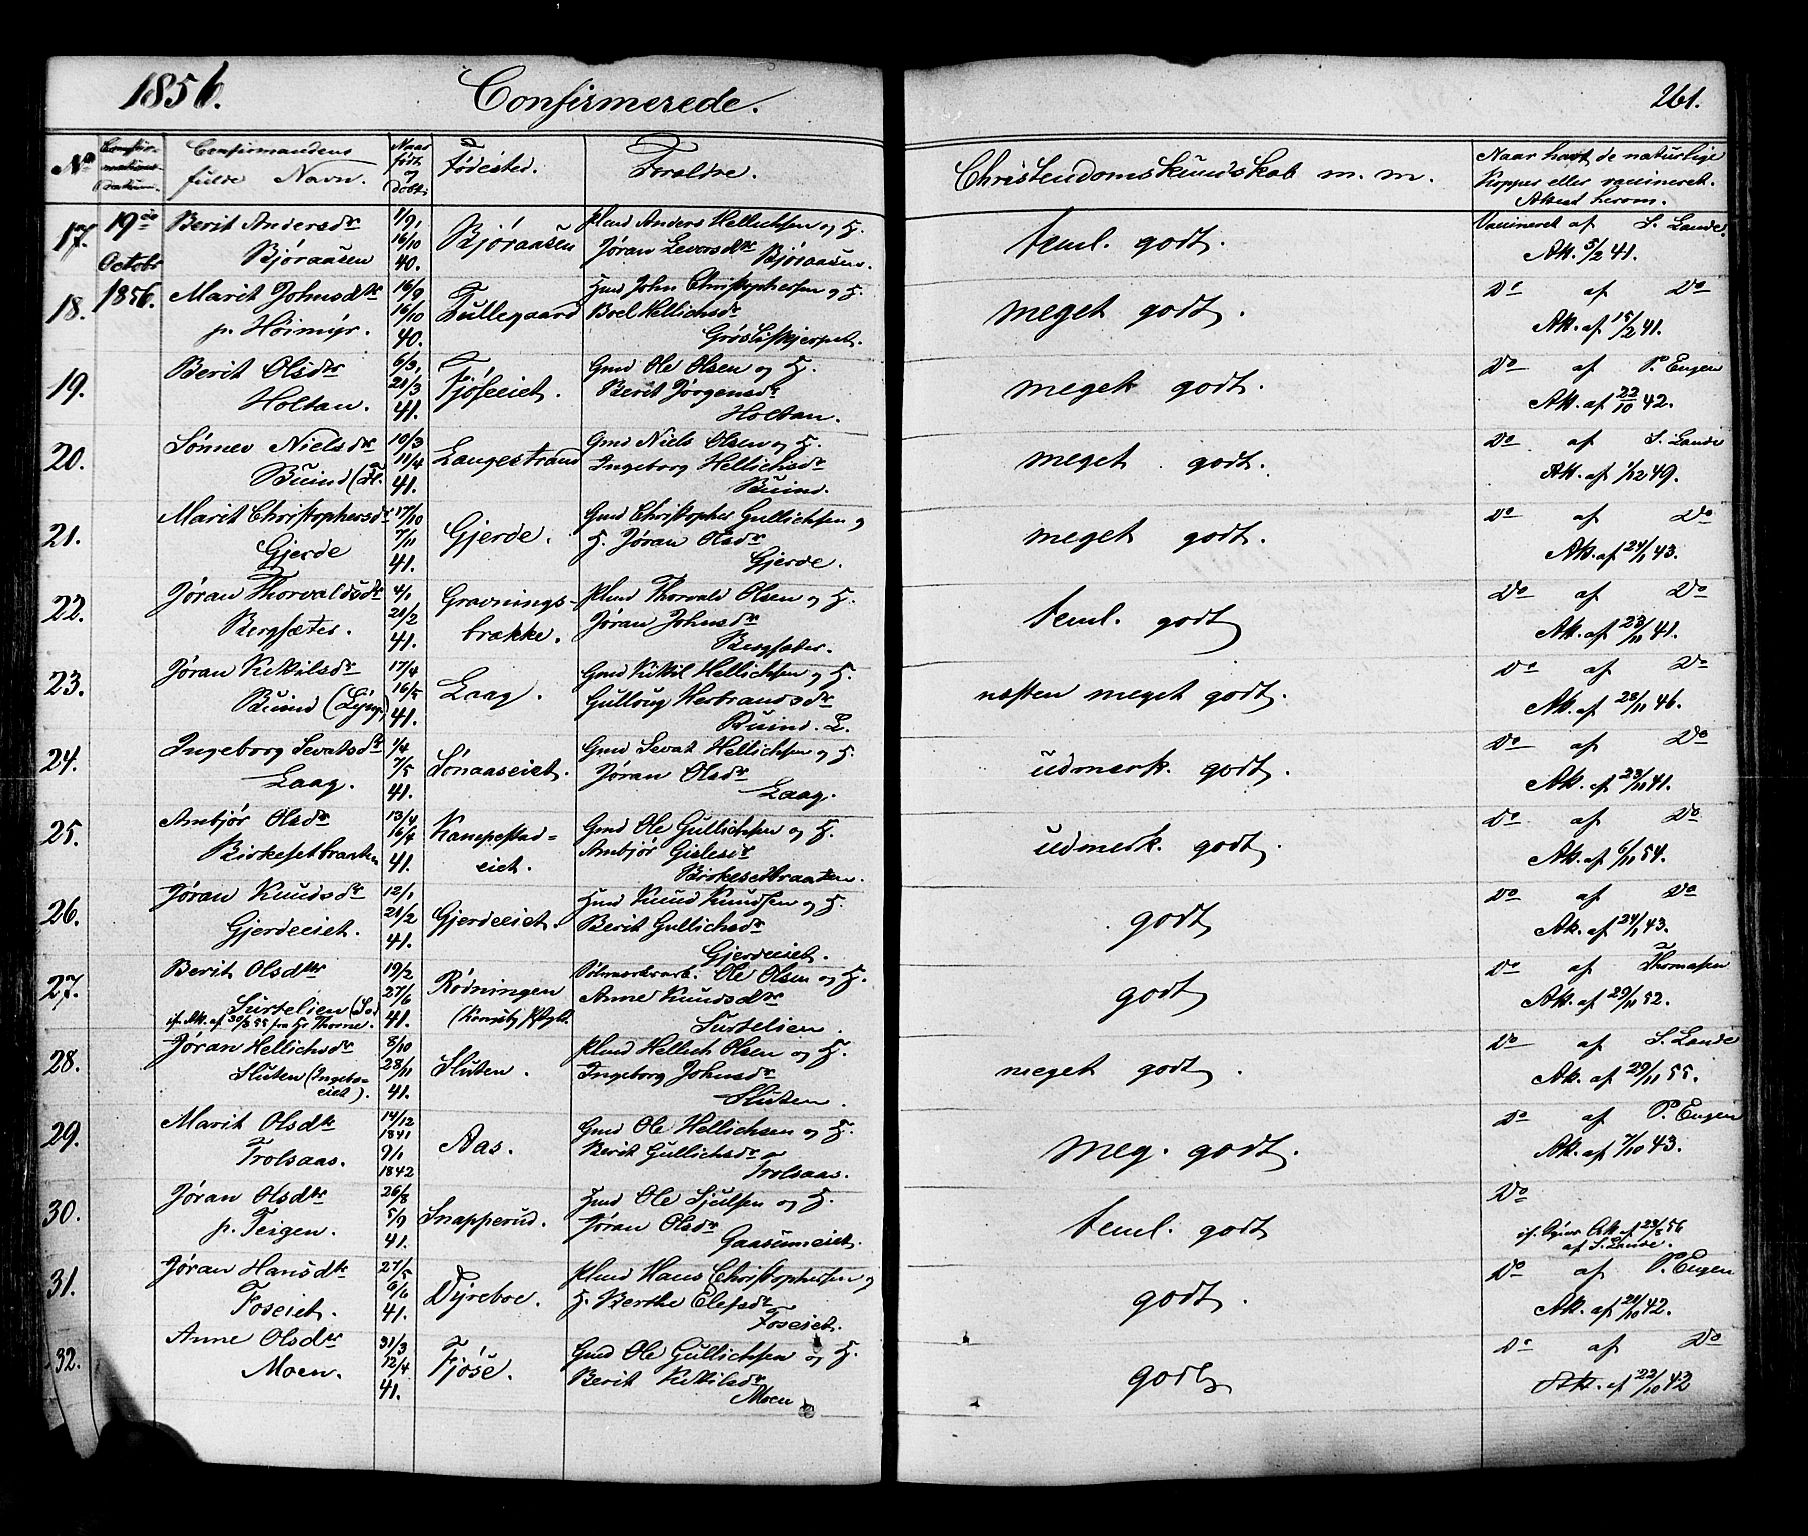 1856. Confirmerede. 261.
No Confirmations Datum. Confirmandens fulde Navn. Naar født og Døbt. Fødested. Forældre. Christendomskundskab m. m. Naar havt de naturlige Kopper eller vaccineret. Attest herom.
17. 19de Octobr 1856. Berit Andersdr 1/9, Bjøraasen Plmd Anders Hellichsen og H. teml. godt. Vaccineret af S. Lande.
Bjøraasen 16/10 40. Jøran Leversdtr Bjøraasen. Att. 5/2 41.
18. Marit Johnsdtr 16/9 Tullegaard Hmd John Christophersen og H. meget godt. Do af Do
p. Høimyr. 16/10 40. Boel Hellichsdr Grøslifskjerpet. Att. af 15/2 41.
19. Berit Olsdtr 6/3, Fjøseeiet. Gmd Ole Olsen og H. meget godt. Do af P. Eugen
Holtan. 21/3 41. Berit Jørgensdr Holtan. Att. af 22/10 42.
20. Sønnev Nielsdtr 10/3 Langestrand Gmd Niels Olsen og H. meget godt. Do af S. Lande
Buind (Fl. 11/4 41. Ingeborg Hellichsdr Buind. Att. af 1/12 49.
21. Marit Christophersdr 17/10 Gjerde. Gmd Christopher Gullichsen og meget godt. Do af Do
Gjerde 7/11 41. H. Jøran Olsdr Gjerde. Att. af 24/1 43.
22. Jøran Thorvaldsdr 4/1 Gravnings- Plmd Thorvald Olsen og H. teml. godt Do af Do
Bergsæter. 21/2 41. brække. Jøran Johnsdr Bergsæter. Att. af 23/11 41.
23. Jøran Kittilsdr 17/4 Laag. Gmd Kittil Hellichsen og H. næsten meget godt. Do af Do
Buind (Lyng.) 16/5 41. Gulloug Herbrandsdr Buind. L. Att. af 28/11 46.
24. Ingeborg Sevatsdr 1/4 Sønaaseiet. Gmd Sevat Hellichsen og H. udmerk. godt. Do af Do
Laag. 7/5 41. Jøran Olsdr Laag. Att. af 23/11 41.
25. Ambjør Olsdr 13/4 Kanepestad- Gmd Ole Gullichsen og H. udmerk. godt. Do af Do
Birkesetbraaten 16/4 41. eiet. Ambjør Gislesdr Birkesetbraaten. Att. af 6/11 54.
26. Jøran Knudsdr 12/1 Gjerdeeiet. Hmd Knud Knudsen og H. godt Do af Do
Gjerdeeiet. 21/2 41. Berit Gullichsdr Gjerdeeiet. Att. af 24/1 43.
27. Berit Olsdtr 19/2 Rødningen Sølvværksarb. Ole Olsen og H. godt Do af Thomasen
Surtelien 27/6 41. (Kongsb. Anne Knudsdtr Surtelien. Att. af 29/11 52.
if. Att. af 30/3 55 fra Hr Thorne.
28. Jøran Hellichsdr 8/10 Sluten. Plmd Hellich Olsen og H. meget godt. Do af S. Lande
Sluten (Ingebo- eiet). 28/11 41. Ingeborg Johnsdr Sluten. Att. af 29/11 55.
29. Marit Olsdtr 14/12 1841 Aas. Gmd Ole Hellichsen og H. meg. godt. Do af P. Eugen
Trolsaas. 9/1 1842 Berit Gullichsdr Trolsaas. Att. af 7/10 43.
30. Jøran Olsdtr 26/8 Snapperud. Hmd Ole Sjulsen og H. teml. godt Do
p. Teigen. 5/9 41. Jøran Olsdr Gaasumeiet. if. Att. af 23/8 56 af S. Lande.
31. Jøran Hansdtr 27/5 Dyreboe. Plmd Hans Christophersen og godt. Do af P. Eugen
Foseiet. 6/6 41. H. Berthe Elefsdr Foseiet. Att. af 21/10 42.
32. Anne Olsdtr 31/3 Fjøse. Gmd Ole Gullichsen og H. godt Do af Do
Moen. 12/4 41. Berit Kittilsdr Moen Att. af 22/10 42